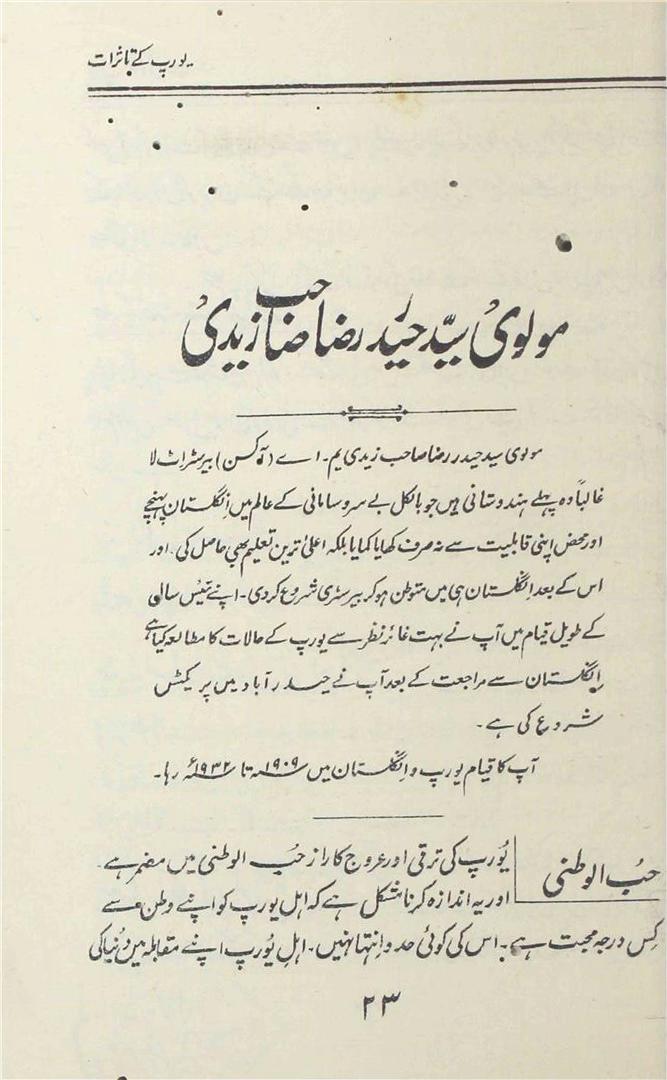 یورپ کے تاثرات
مولوی سیّد حیدر رضا صاحب زیدی
مولوی سید حیدر رضا صاحب زیدی یم۔ اے (آکسن) بیرسٹراٹ لا
غالباً وہ پہلے ہندوستانی ہیں جو بالکل بے سروسامانی کے عالم میں انگلستان پہنچے
اور محض اپنی قابلیت سے نہ صرف کھایا کمایا بلکہ اعلیٰ ترین تعلیم بھی حاصل کی۔ اور
اس کے بعد انگلستان ہی میں متوطن ہوکر بیرسٹری شروع کردی۔ اپنے تئیس سالی
کے طویل قیام میں آپ نے بہت غائر نظر سے یورپ کے حالات کا مطالعہ کیا ہے
انگلستان سے مراجعت کے بعد آپ نے حیدرآباد میں پریکٹس
شروع کی ہے۔
آپ کا قیام یورپ و انگلستان میں ۱۹۰۹ء تا ۱۹۳۲ء رہا۔
حُبّ الوطنی
یُورپ کی ترقی اور عروج کا راز حُبّ الوطنی میں مضمر ہے۔
اور یہ اندازہ کرنا مشکل ہے کہ اہل یورپ کو اپنے وطن سے
کِس درجہ محبت ہے۔ اس کی کوئی حد و اِنتہا نہیں۔ اہلِ یُورپ اپنے مقابلہ میں دُنیا کی
۲۳